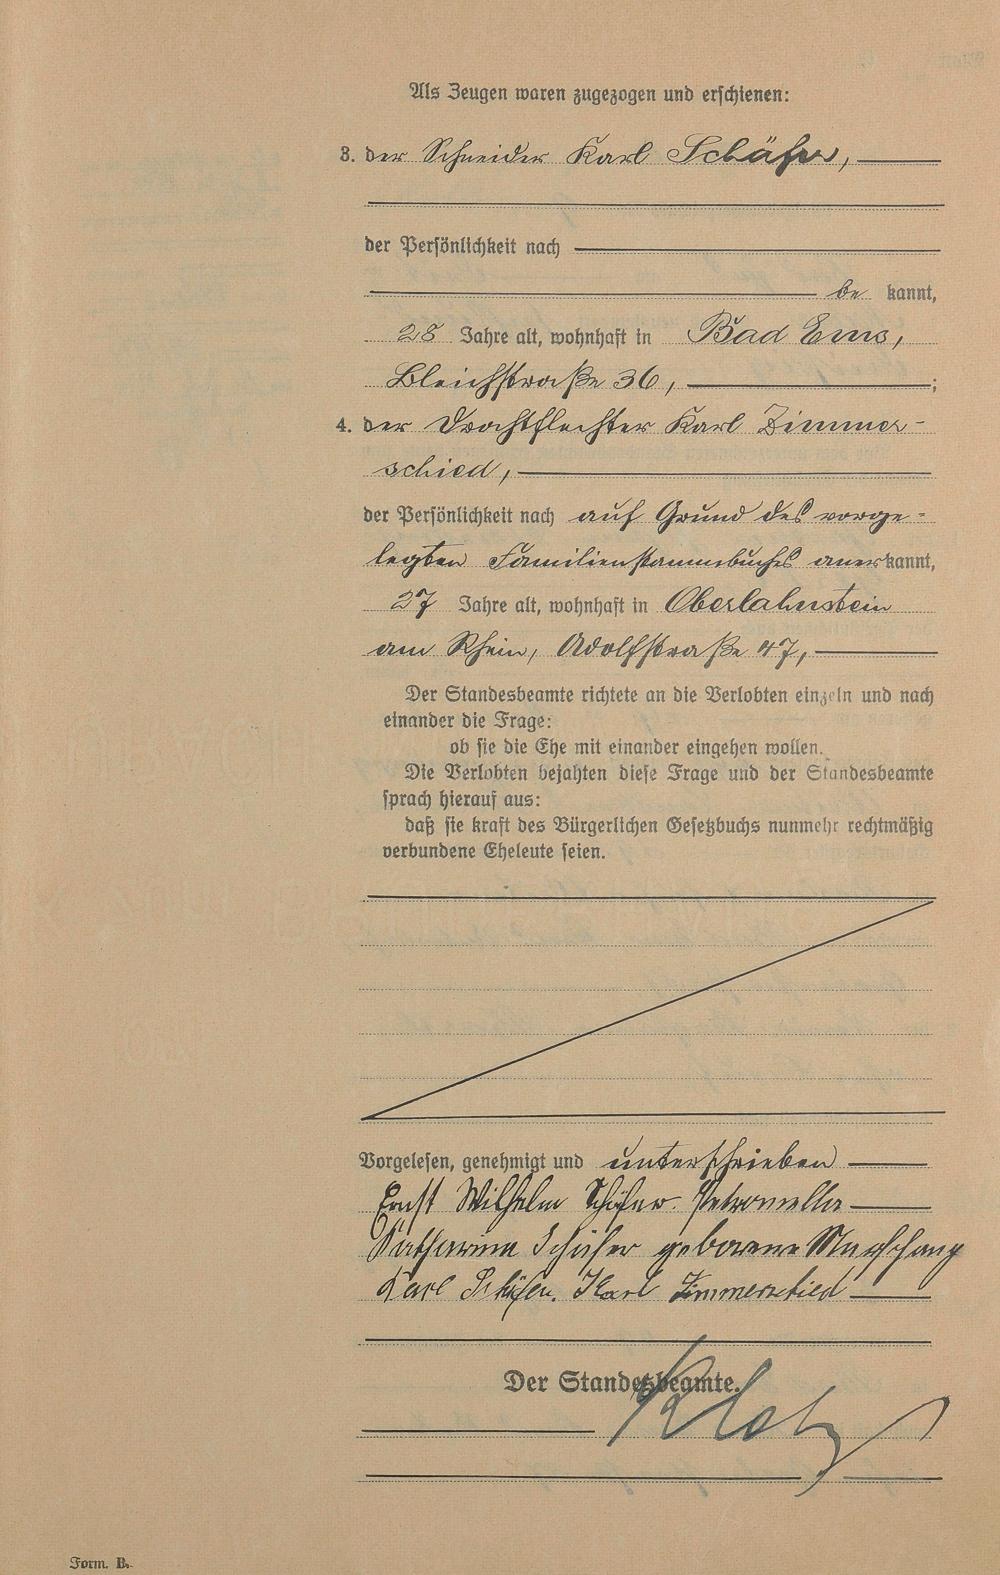 Als Zeugen waren zugezogen und erschienen:
3. der Schneider Karl Schäfer,
der Persönlichkeit nach
be kannt,
28 Jahre alt, wohnhaft in Bad Ems,
Bleichstraße 36, ;
4. der Drahtflechter Karl Zimmer-
schied,
der Persönlichkeit nach auf Grund des vorge-
legten Familienstammbuches aner kannt,
27 Jahre alt, wohnhaft in Oberlahnstein
am Rhein, Adolfstraße 47,
Der Standesbeamte richtete an die Verlobten einzeln und nach
einander die Frage:
ob sie die Ehe mit einander eingehen wollen.
Die Verlobten bejahten diese Frage und der Standesbeamte
sprach hierauf aus:
daß sie kraft des Bürgerlichen Gesetzbuchs nunmehr rechtmäßig
verbundene Eheleute seien.
Vorgelesen, genehmigt und unterschrieben
Ernst Wilhelm Schäfer. Petronella
Katharina Schäfer geborene
Karl Schäfer. Karl Zimmerschied
Der Standesbeamte.
Klotz
Form. B.